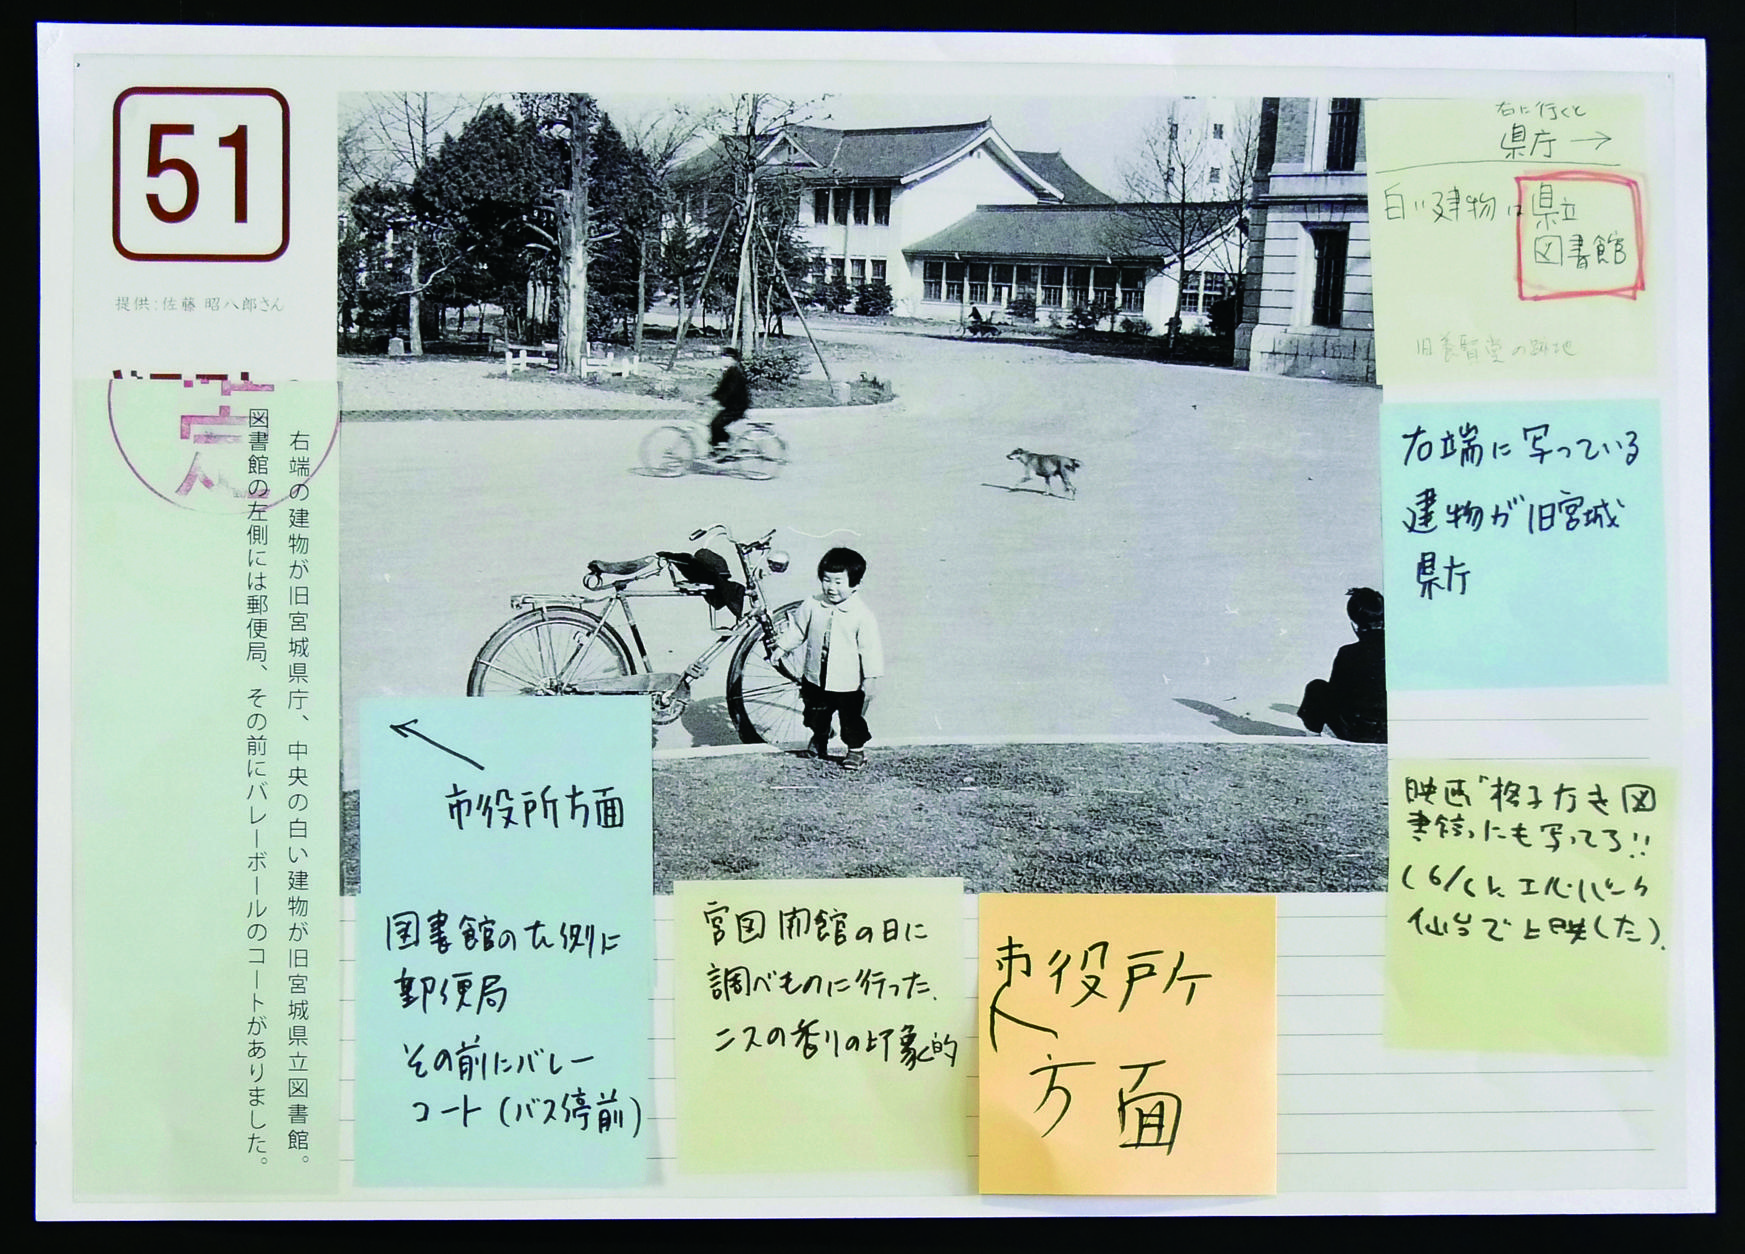 51
提供:佐藤 昭八郎さん
定
右端の建物が旧宮城県庁、中央の白い建物が旧宮城県立図書館。
図書館の左側には郵便局、その前にバレーボールのコートがありました。
右に行くと
県庁→
白い建物は県立
図書館
旧養賢堂の跡地
右端に写っている
建物が旧宮城
県庁
映画「格子なき図
書館」にも写ってる!!
仙台で上映した).
←
市役所方面
図書館の左側に
郵便局
その前にバレー
コート(バス停前)
宮図開館の日に
調べものに行った.
ニスの香りの印象的
市役所
方面